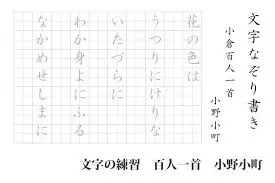 文字なぞり書き
小倉百人一首
小野小町
花の色は
うつりにけりな
いたづらに
わが身よにふる
ながめせしまに
文字の練習　百人一首　小野小町